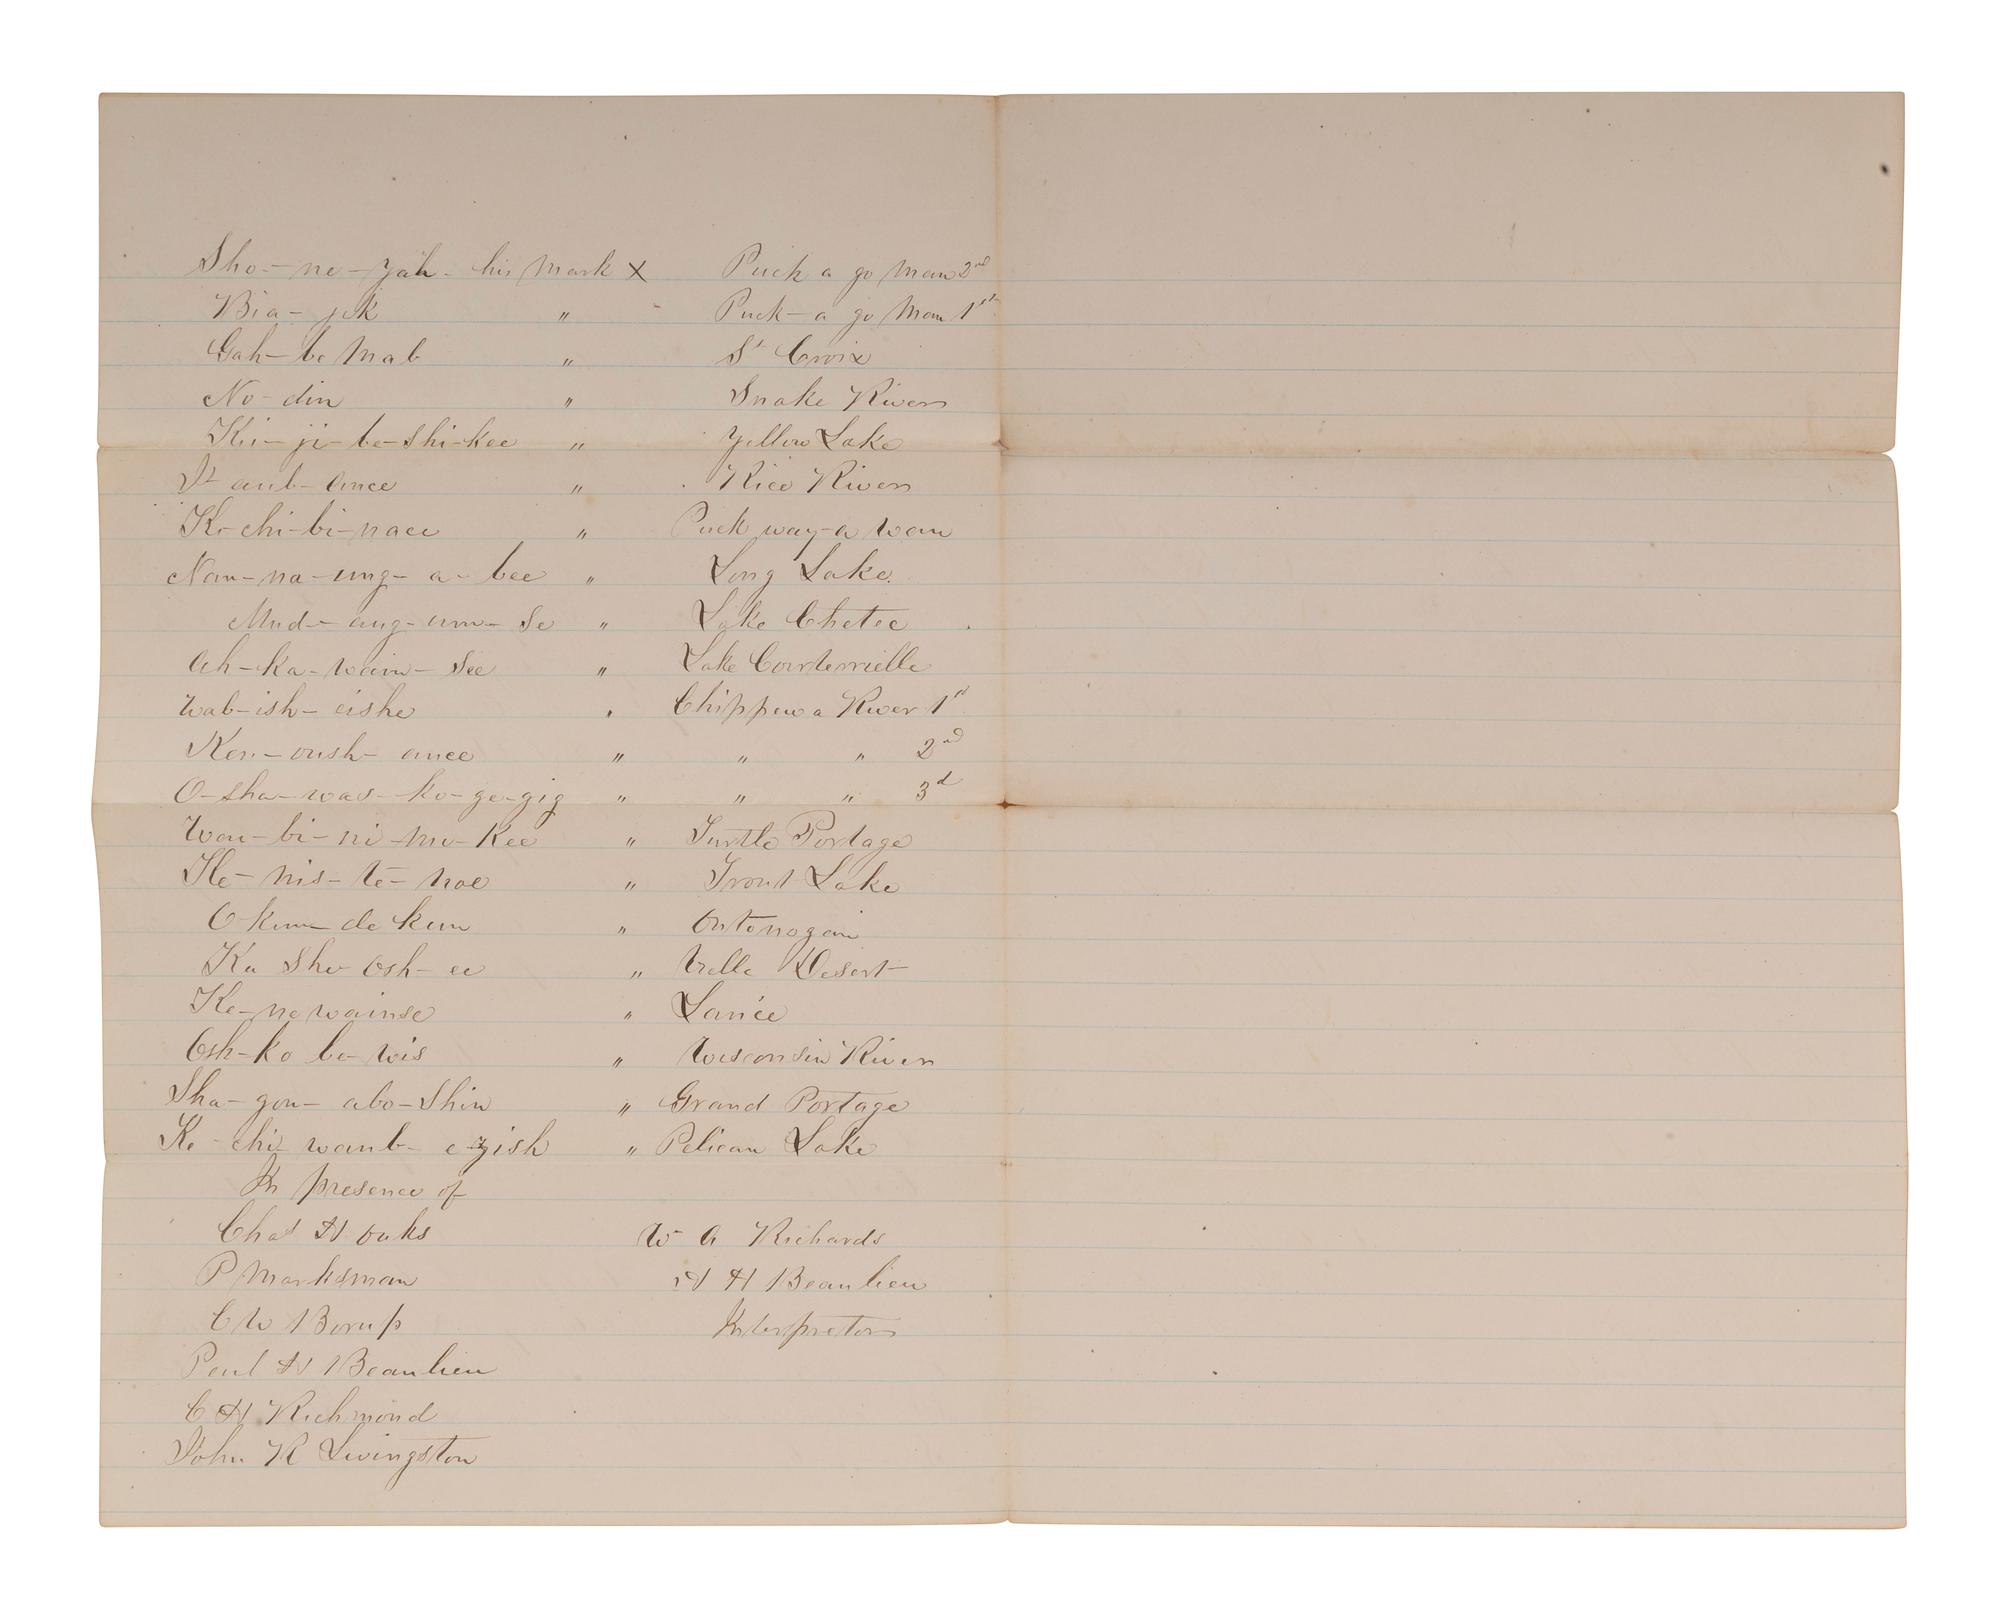 Sho-ne-yah- his mark X Puck a go Mon 2nd
Bia-jik " Puck-a go Mon 1st
Gah-be Mab " St Croix
No-din " Snake River
Kii-ji-be-shi-kee " Yellow Lake
It aub-ance " Rice River
Ke-chi-bi-nace " Puck way-a wan
Nau-na-ung-a-bee " Long Lake
Mud-aug-um-Se " Lake Chetec
Ah-ka-wain-See " Lake Courterrielle
Wab-ish-eishe " Chippewa River 1st
Ken-oush-ance " " " 2nd
O-sha-was-ko-ge-gig " " " 3d
Wau-bi-ni-mu-Kee " Turtle Portage
Ke-nis-te-noe " Trout Lake
O kum-de kun " Ontonagan
Ka She-osh-ee " Vielle Desert
Ke-ne wainse " Lance
Osh-ko be-wis " Wisconsin River
Sha-gou-abo-Shin " Grand Portage
Ke-chi waub-ezish " Pelican Lake
In presence of
Chas H Oaks W A Richards
P Marksman H H Beaulieu
C W Borup Interpreters
Paul H Beaulieu
C H Richmond
John R Livingston